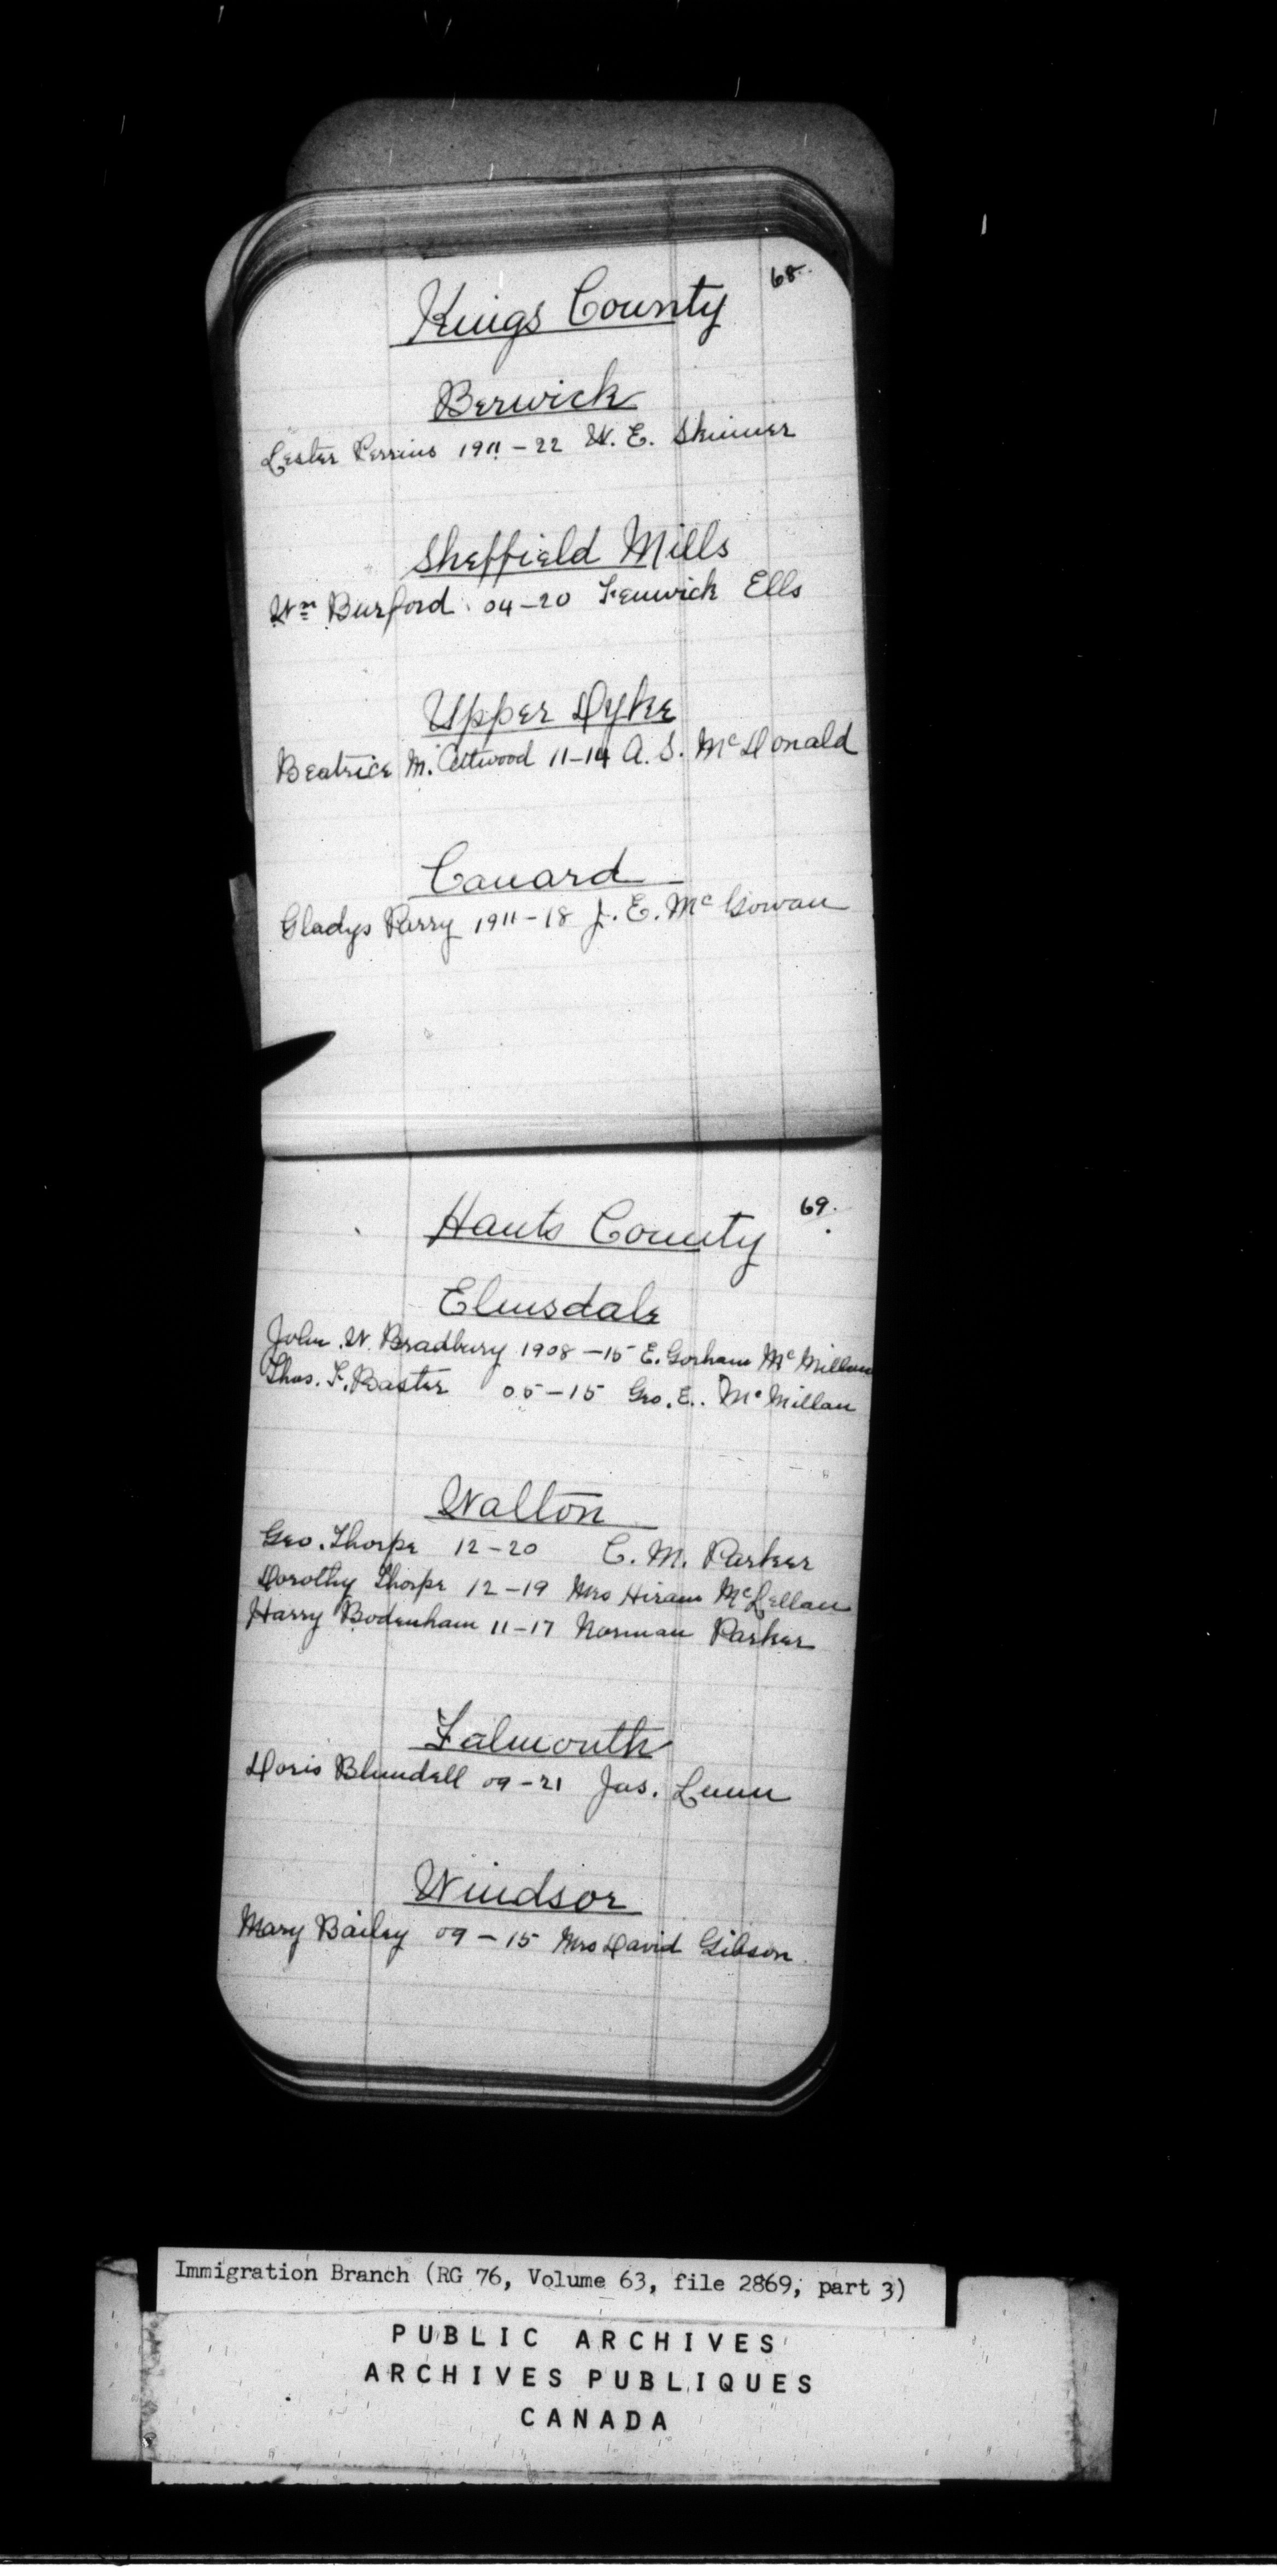 68.
Kings County
Berwick
Lester Perrins 1911-22 W. E. Skinner
Sheffield Mills
Wm Burford. 04-20 Fenwick Ells
Upper Dyke
Beatrice M. Attwood 11-14 A. S. McDonald
Canard
Gladys Parry 1911-18 J. E. McGowan
69.
Hants County
Elmsdale
John W. Bradbury 1908-15 E. Gorham McMillan
Thos. F. Baster 05-15 Geo. E. McMillan
Walton
Geo. Thorpe 12-20 C. M. Parker
Dorothy Thorpe 12-19 Mrs Hiram McLellan
Harry Bodenham 11-17 Norman Parker
Falmouth
Doris Blundell 09-21 Jas. Lunn
Windsor
Mary Bailey 09-15 Mrs David Gibson.
Immigration Branch (RG 76, Volume 63, file 2869, part 3)
PUBLIC ARCHIVES
ARCHIVES PUBLIQUES
CANADA